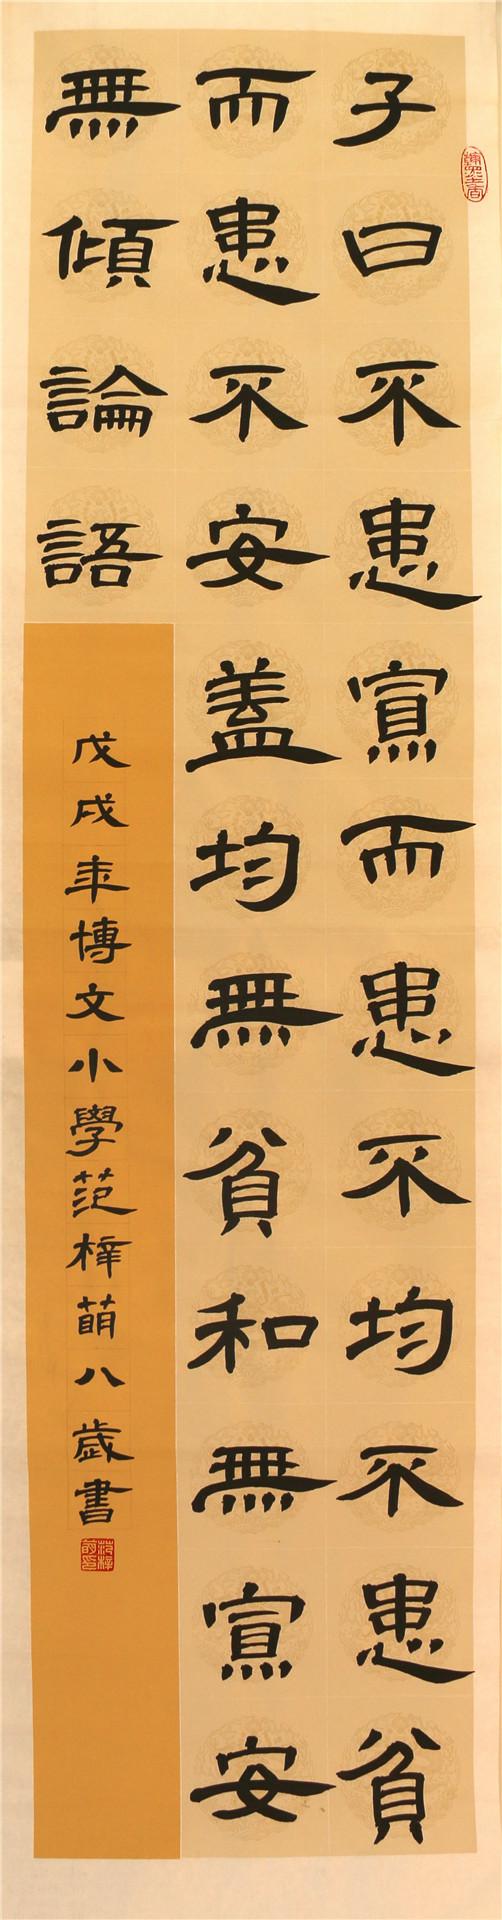 子曰不患寡而患不均不患貧
而患不安盖均無貧和無寡安
無傾論語
戊戌年博文小學范梓萌八歲書
范梓萌印